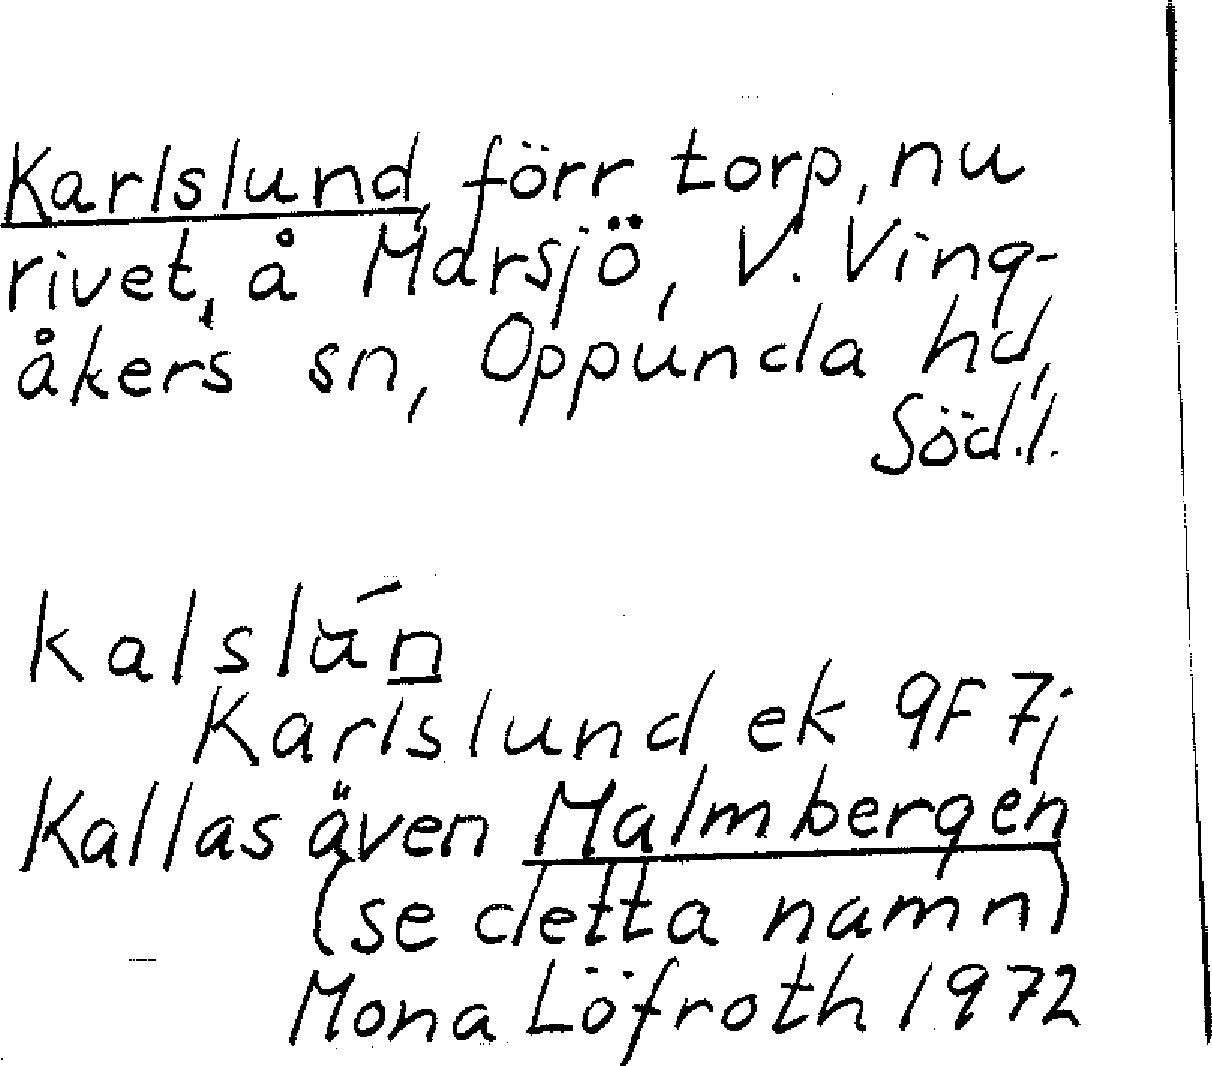 Karlslund, förr torp, nu
rivet, å Marsjö, V. Ving-
åkers sn, Oppunda hd,
Söd.l.
kalslún
Karlslund ek 9F 7j
Kallas även Malmbergen
(se detta namn)
Mona Löfroth 1972